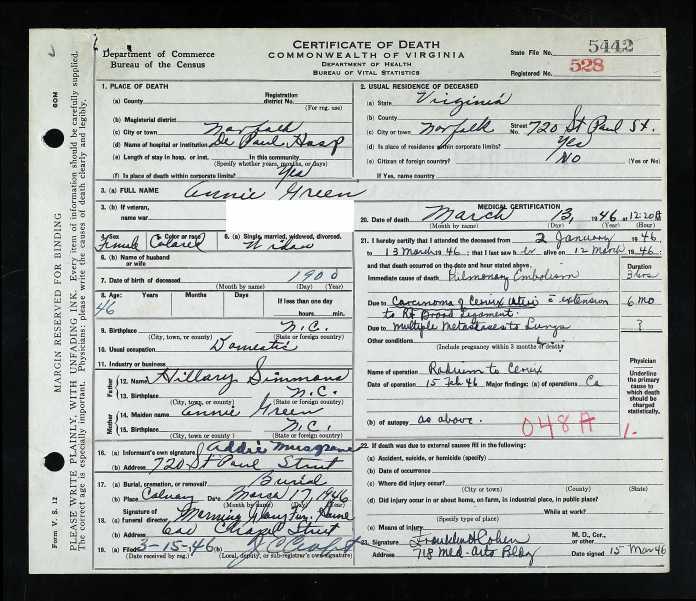 CERTIFICATE OF DEATH
COMMONWEALTH OF VIRGINIA
DEPARTMENT OF HEALTH
BUREAU OF VITAL STATISTICS
Department of Commerce
Bureau of the Census
State File No. 5442
Registered No. 528
MARGIN RESERVED FOR BINDING
PLEASE WRITE PLAINLY, WITH UNFADING INK. Every item of information should be carefully supplied.
The correct age is especially important. Physicians: please write the causes of death clearly and legibly.
Form V. S. 12
60M
1. PLACE OF DEATH
(a) County
Registration district No.
(For reg. use)
(b) Magisterial district
(c) City or town Norfolk
(d) Name of hospital or institution De Paul Hosp
(e) Length of stay in hosp. or inst. In this community
(Specify whether years, months, or days)
(f) Is place of death within corporate limits? Yes
2. USUAL RESIDENCE OF DECEASED
(a) State Virginia
(b) County
(c) City or town Norfolk Street No. 720 St Paul St.
(d) Is place of residence within corporate limits? Yes
(e) Citizen of foreign country? No (Yes or No)
If Yes, name country
3. (a) FULL NAME Annie Green
3. (b) If veteran,
name war
4. Sex Female
5. Color or race Colored
6. (a) Single, married, widowed, divorced. Widow
6. (b) Name of husband
or wife
7. Date of birth of deceased 1900
(Month by name) (Day) (Year)
8. Age: Years Months Days If less than one day
46 hours min.
9. Birthplace N.C.
(City, town, or county) (State or foreign country)
10. Usual occupation Domestic
11. Industry or business
Father
12. Name Hillary Simmons
13. Birthplace N.C.
(City, town, or county) (State or foreign country)
Mother
14. Maiden name Annie Green
15. Birthplace N.C.
(City, town, or county) (State or foreign country)
16. (a) Informant's own signature Addie Musgrave
(b) Address 720 St Paul Street
17. (a) Burial, cremation, or removal? Burial
(b) Place Calvary Date March 17, 1946
(Month by name) (Day) (Year)
18. Signature of funeral director
Address Chapel Street
19. (a) Filed 3-15-46 (b)
(Date received by reg.) (Local, deputy, or sub-registrar's own signature)
MEDICAL CERTIFICATION
20. Date of death March 13, 1946 at 12:20
(Month by name) (Day) (Year) (Hour)
21. I hereby certify that I attended the deceased from 2 January 1946
to 13 March 1946; that I last saw her alive on 12 March 1946;
and that death occurred on the date and hour stated above. Duration
Immediate cause of death Pulmonary Embolism 3 hrs
Due to Carcinoma of Cervix Uteri c extension 6 mo
to Rt Broad Ligament.
Due to Multiple Metastases to Lungs ?
Other conditions
(Include pregnancy within 3 months of death)
Physician
Underline the primary cause to which death should be charged statistically.
Name of operation Radium to Cervix
Date of operation 15 Feb 46 Major findings: (a) of operations Ca
(b) of autopsy as above.
048A 1.
22. If death was due to external causes fill in the following:
(a) Accident, suicide, or homicide (specify)
(b) Date of occurrence
(c) Where did injury occur?
(City or town) (County) (State)
(d) Did injury occur in or about home, on farm, in industrial place, in public place?
While at work?
(Specify type of place)
(e) Means of injury
23. Signature Franklin Cohen M. D., Cor., or other
Address 718 Med-Arts Bldg Date signed 15 Mar 46